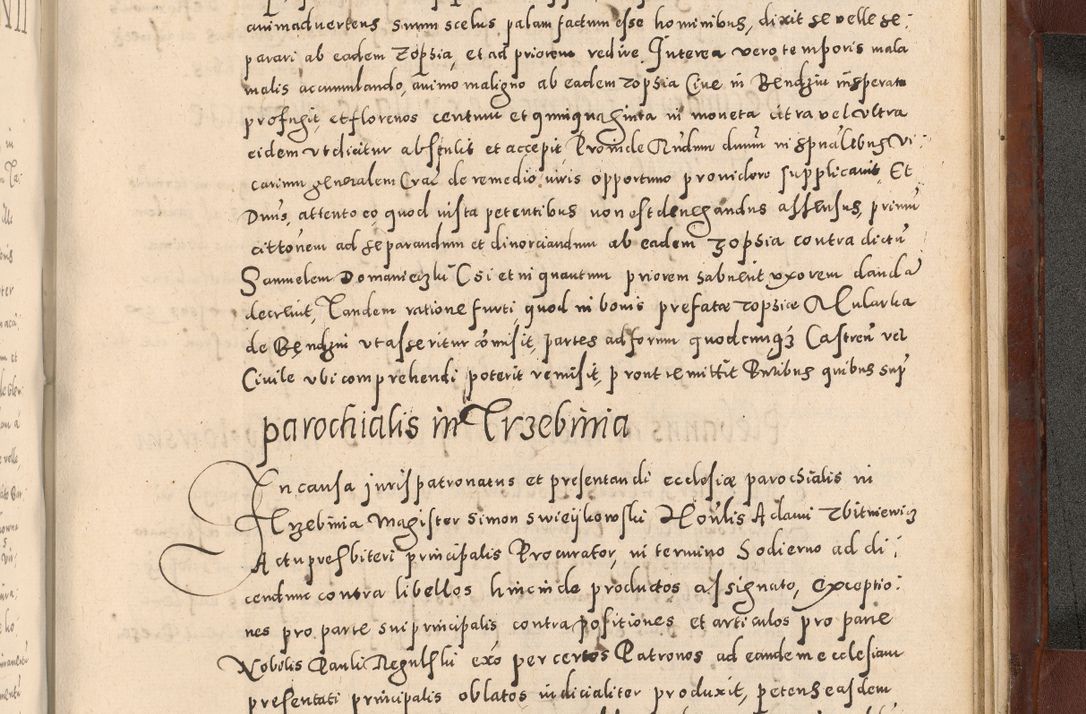 animadvertens suum scelus palam factum esse hominibus, dixit se velle se:
parari ab eadem Zopsia, et ad priorem redire. Interea vero temporis mala
malis accumulando, animo maligno ab eadem Zopsia Cive in Bendzin insperate
profugit, et florenos centum et quinquaginta in moneta citra vel ultra
eidem ut dicitur abstulit et accepit Proinde Rndum dnum in spualibus Vi:
carium generalem Crac de remedio iuris opportuno providero supplicavit, Et
Dnus, attento eo quod iusta petentibus non est denegandus assensus, primu
cittonem ad separandum et divorciandum ab eadem Zopsia contra dictu
Samuelem Domaniecz Csi et in quantum priorem habuerit uxorem danda
decrevit, Tandem ratione furti, quod in bonis prefatae Zopsiae Mularka
de Bendzin ut asseritur comisit, partes ad forum quodcunqz Castren vel
Civile ubi comprehendi poterit remisit, prout remittit Partibus quibus sup
parochialis in Trzebinia
In causa jurispatronatus et presentandi ecclesiae parochialis in
Trzebinia Magister Simon Swieijkowski Honlis Adami Zbitniewicz
Actu presbiteri principalis Procurator, in termino hodierno ad di:
cendum contra libellos hincinde productos assignato, Exceptio:
nes pro parte sui principalis contra positiones et articulos pro parte
Nobolis Pauli Regulski exo per certos Patronos ad eandem ecclesiam
presentati principalis oblatos iudicialiter produxit, petens easdem